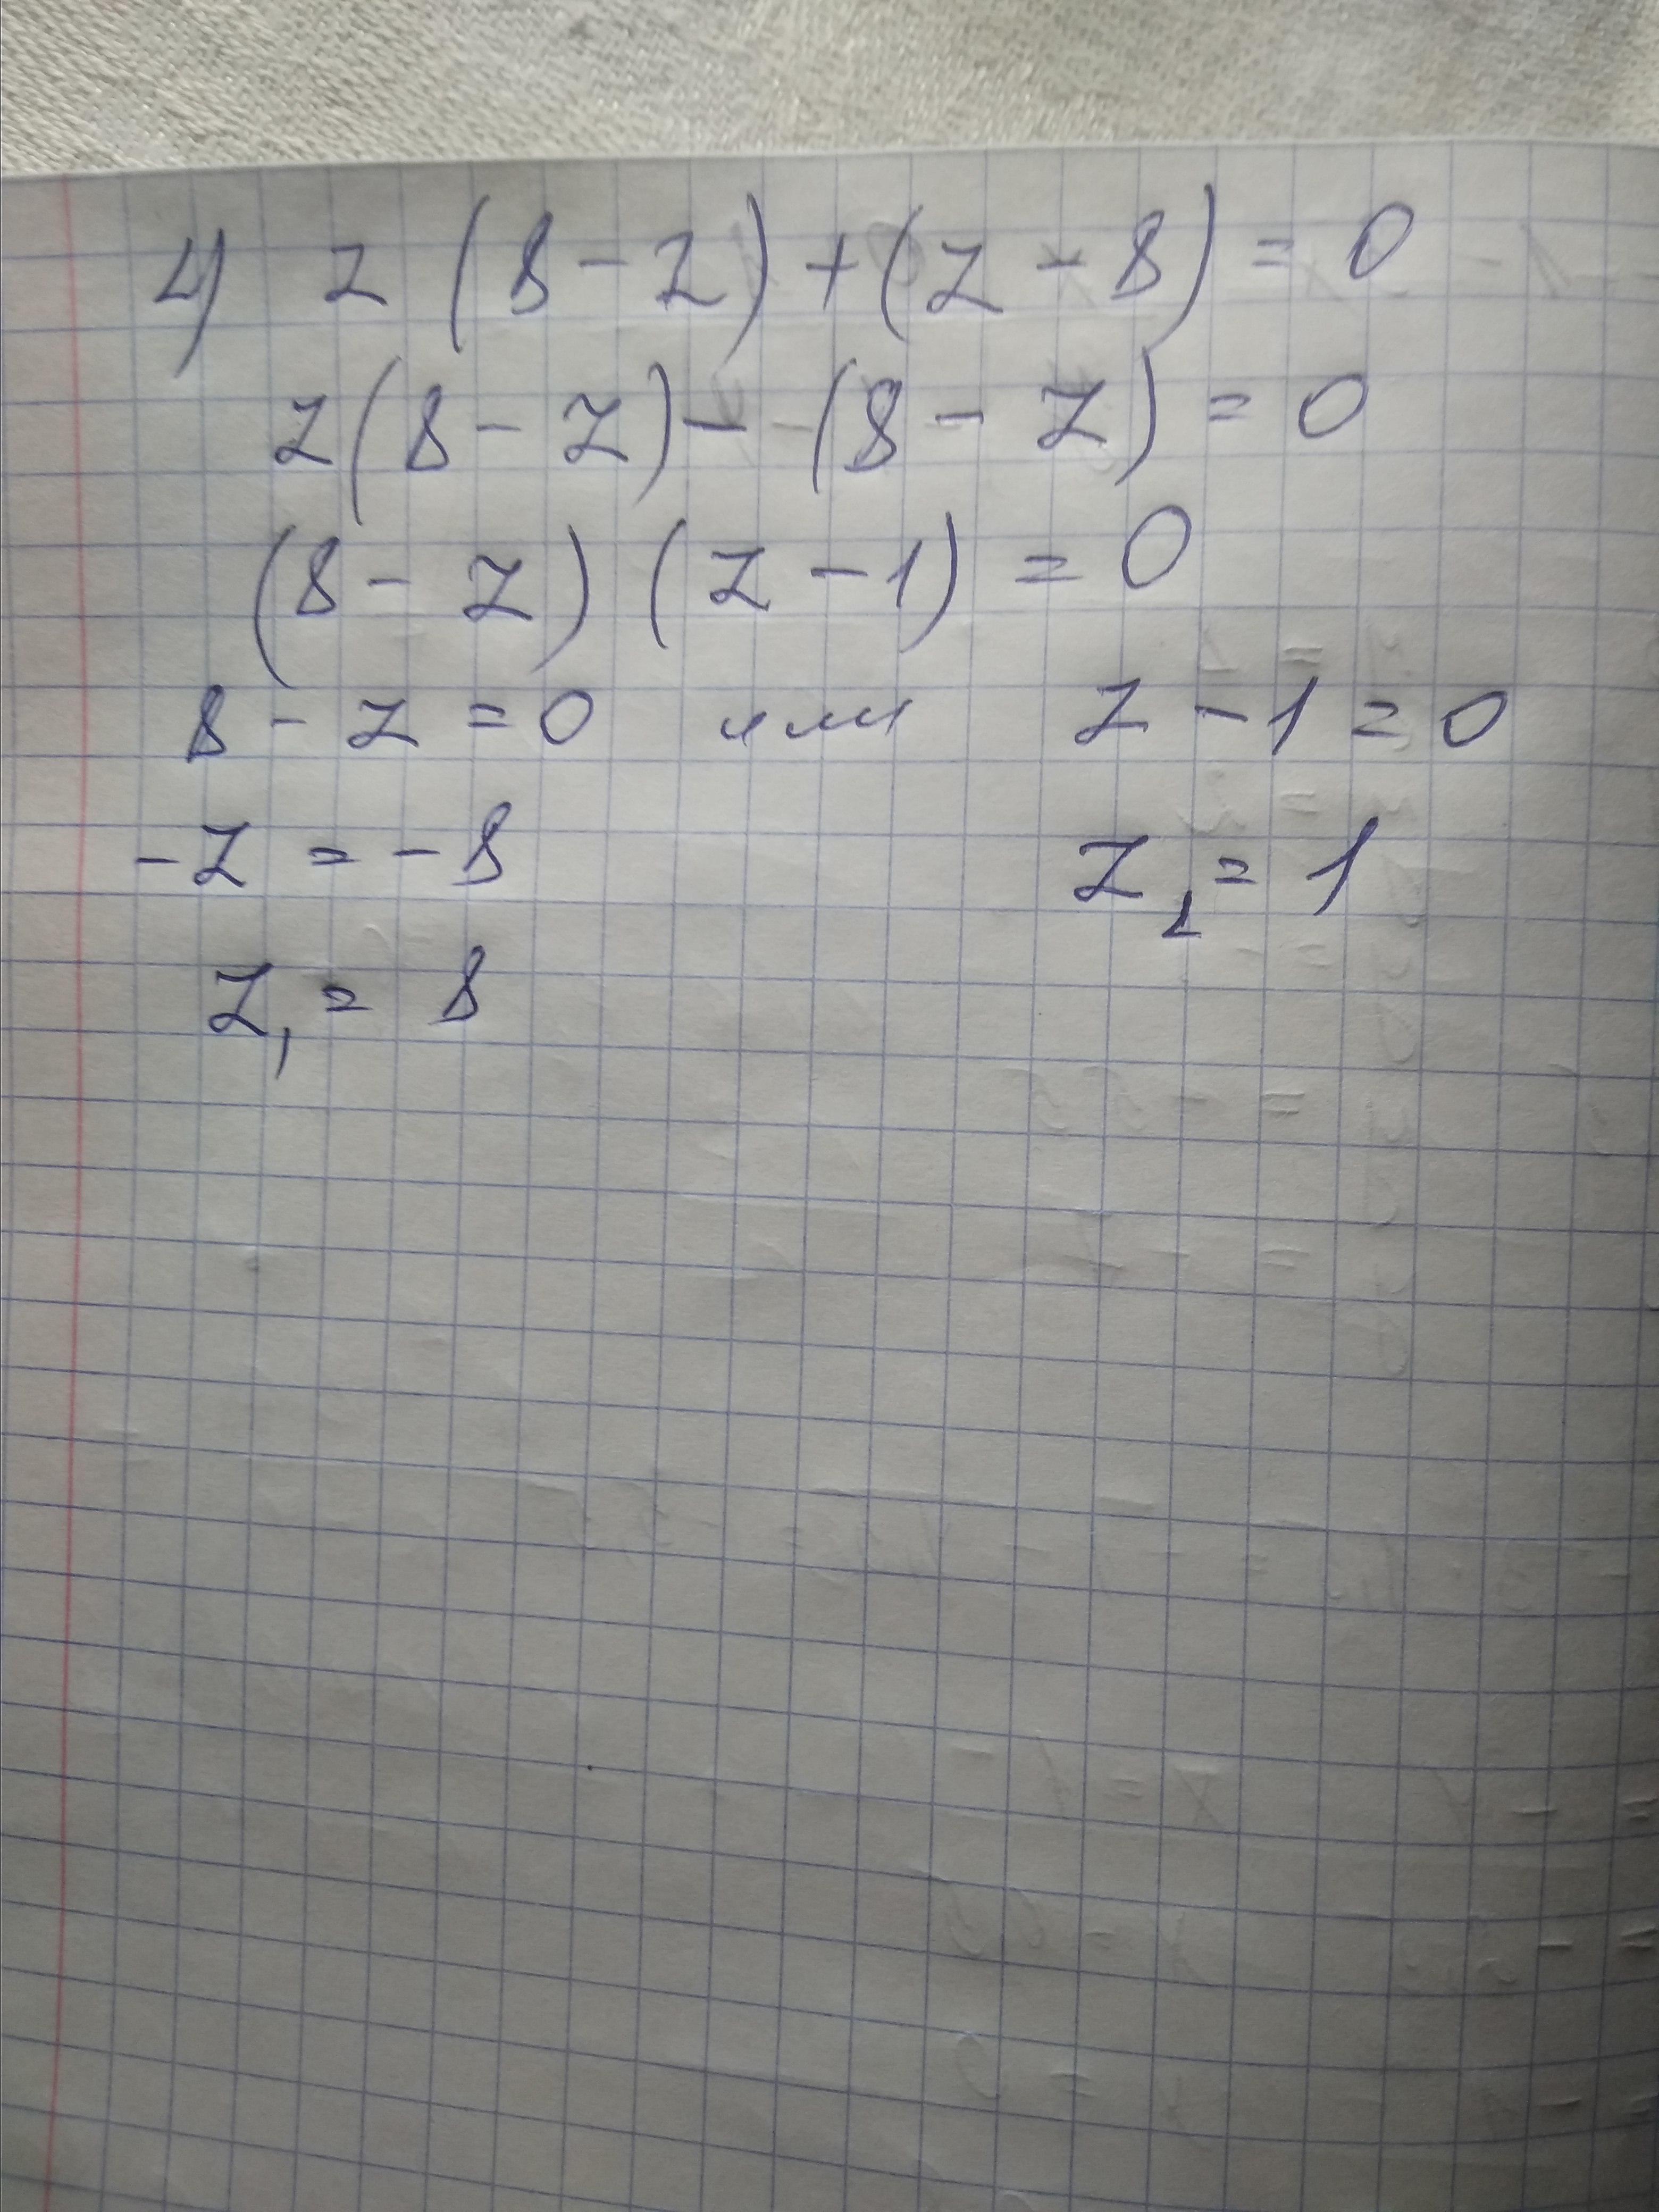 4) z (8 - z) + (z - 8) = 0
z (8 - z) - (8 - z) = 0
(8 - z) (z - 1) = 0
8 - z = 0 или z - 1 = 0
-z = -8 z₂ = 1
z₁ = 8